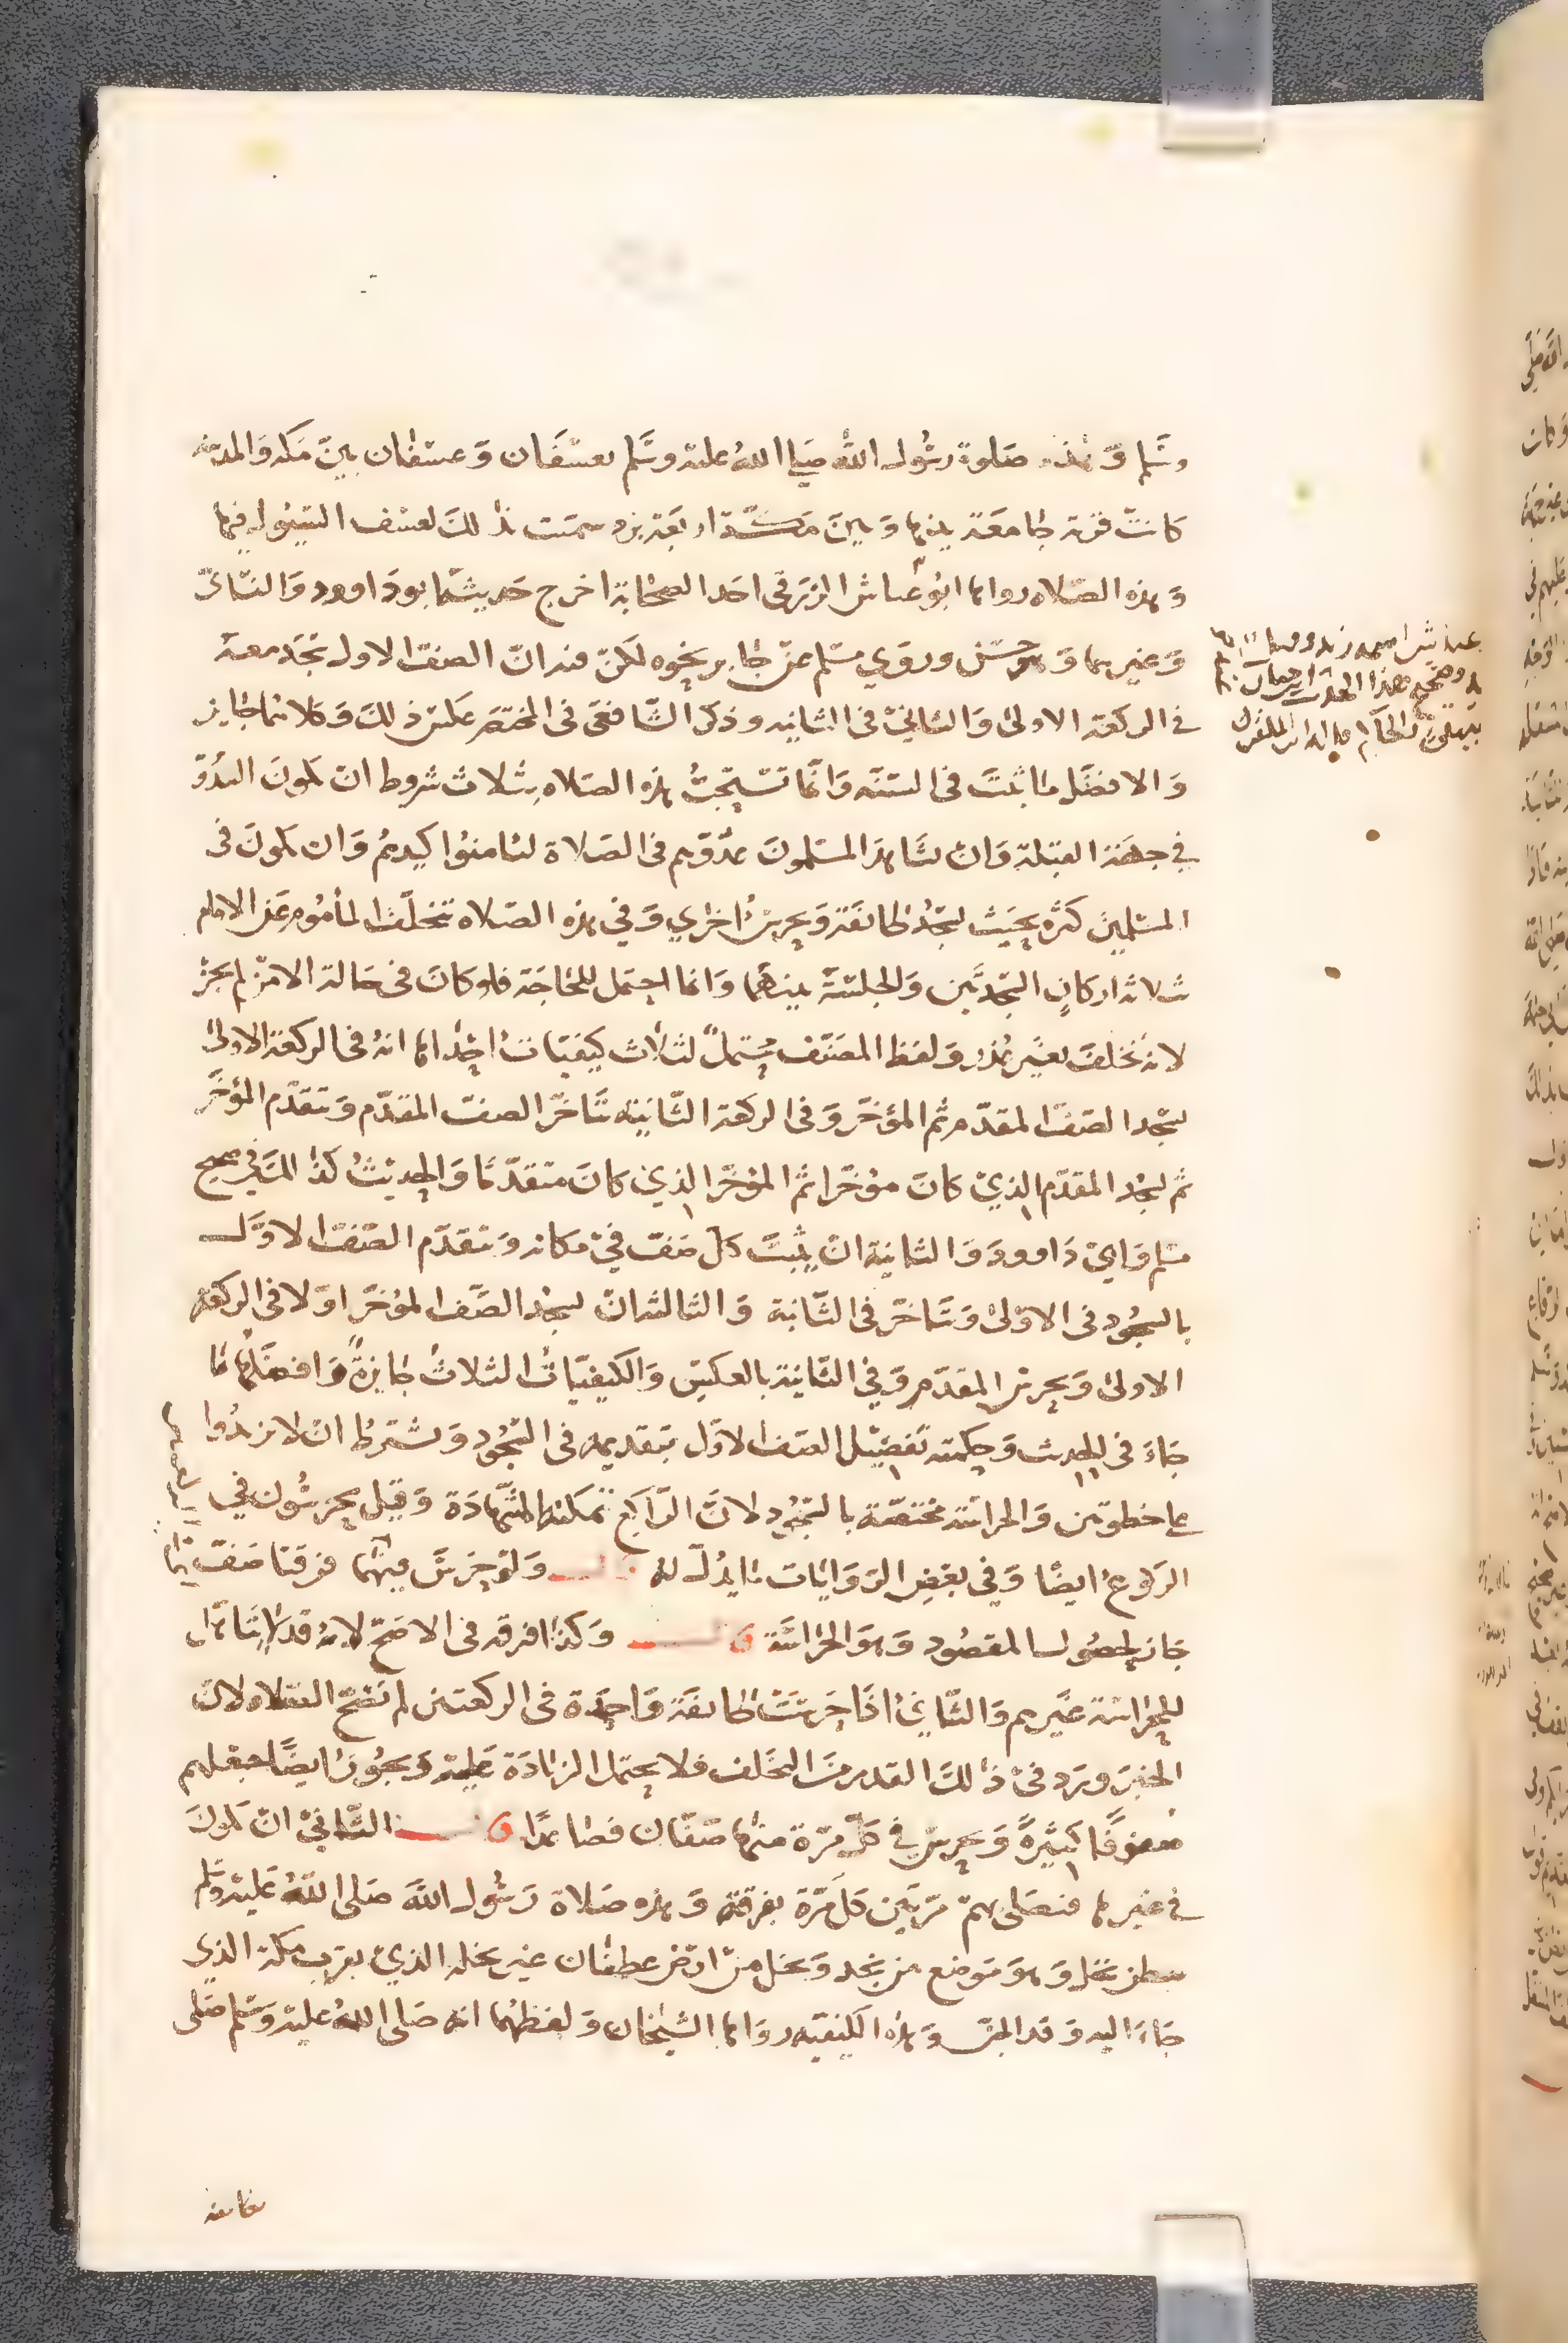 وسلم وهذه صلوة رسول الله صلى الله عليه وسلم بعسفان وعسفان بين مكه والمدينه
كانت قرية جامعة بينها وبين مكة اربعة برد سميت ذلك لعسف السيول فيها
وهذه الصلاه رواها ابو عياش الزرقي احد الصحابة اخرج حديثه ابو داوود والنسائي
وغيرهما وهو حسن وروي مسلم عن جابر نحوه لكن فيه ان الصف الاول سجد معه
في الركعة الاولى والثاني في الثانيه وذكر الشافعي في المختصر عكس ذلك وكلاهما جايز
والافضل ما ثبت في السنه وانما تستحب هذه الصلاه بثلاث شروط ان يكون العدو
في جهة القبلة وان يشاهد المسلمون عدوهم في الصلاة ليامنوا كيدهم وان يكون في
المسلمين كثره بحيث يسجد طائفة ويحرس اخرى وفي هذه الصلاه تخلف المأموم عن الامام
بثلاثة اركان السجدتين والجلسة بينهما وانما احتمل للحاجة فلو كان في حالة الامن لم يجز
لانه تخلف بغير عذر ولفظ المصنف محتمل لثلاث كيفيات احداها انه في الركعة الاولى
يسجد الصف المقدم ثم المؤخر وفي الركعة الثانيه يتاخر الصف المقدم ويتقدم المؤخر
ثم يسجد المقدم الذي كان مؤخرا ثم المؤخر الذي كان متقدما والحديث كذا ‎في صحيح
مسلم وابي داوود والثانية ان يثبت كل صف في مكانه ويتقدم الصف الاول
بالسجود في الاولى ويتاخر في الثانية والثالثة ان يسجد الصف المؤخر اولا في الركعة
الاولى ويحرس المقدم وفي الثانية بالعكس والكيفيات الثلاث جايزة وافضلها ما
جاء في الحديث وحكمته تفضيل الصف الاول بتقديمه في السجود ويشترط ان لا يزيدوا
على خطوتين والحراسة مختصة بالسجود لان الراكع تمكنه المشاهدة وقيل يحرسون في
الركوع ايضا وفي بعض الروايات ما يدل له قال ولو حرس فيهما فرقتا صف
جاز لحصول المقصود وهو الحراسة قال وكذا فرقه في الاصح لانه قد لا يتاهل
للحراسة غيرهم والثاني اذا حرست طائفة واحدة في الركعتين لم تصح الصلاه لان
الخبر ورد في ذلك القدر من التخلف فلا يحتمل الزيادة عليه ويجوز ايضا جعلهم
صفوفا كثيرة ويحرس في كل مرة منها صفان فصاعدا قال الثاني ان يكون
في غيرها فيصلى بهم مرتين كل مرة بفرقة وهذه صلاة رسول الله صلى الله عليه وسلم
ببطن نخل وهو موضع من نجد ونخل من ارض غطفان غير نخله الذي بقرب مكة الذي
جاء اليه وفد الجن وهذه الكيفيه رواها الشيخان ولفظهما انه صلى الله عليه وسلم صلى
بطائفة